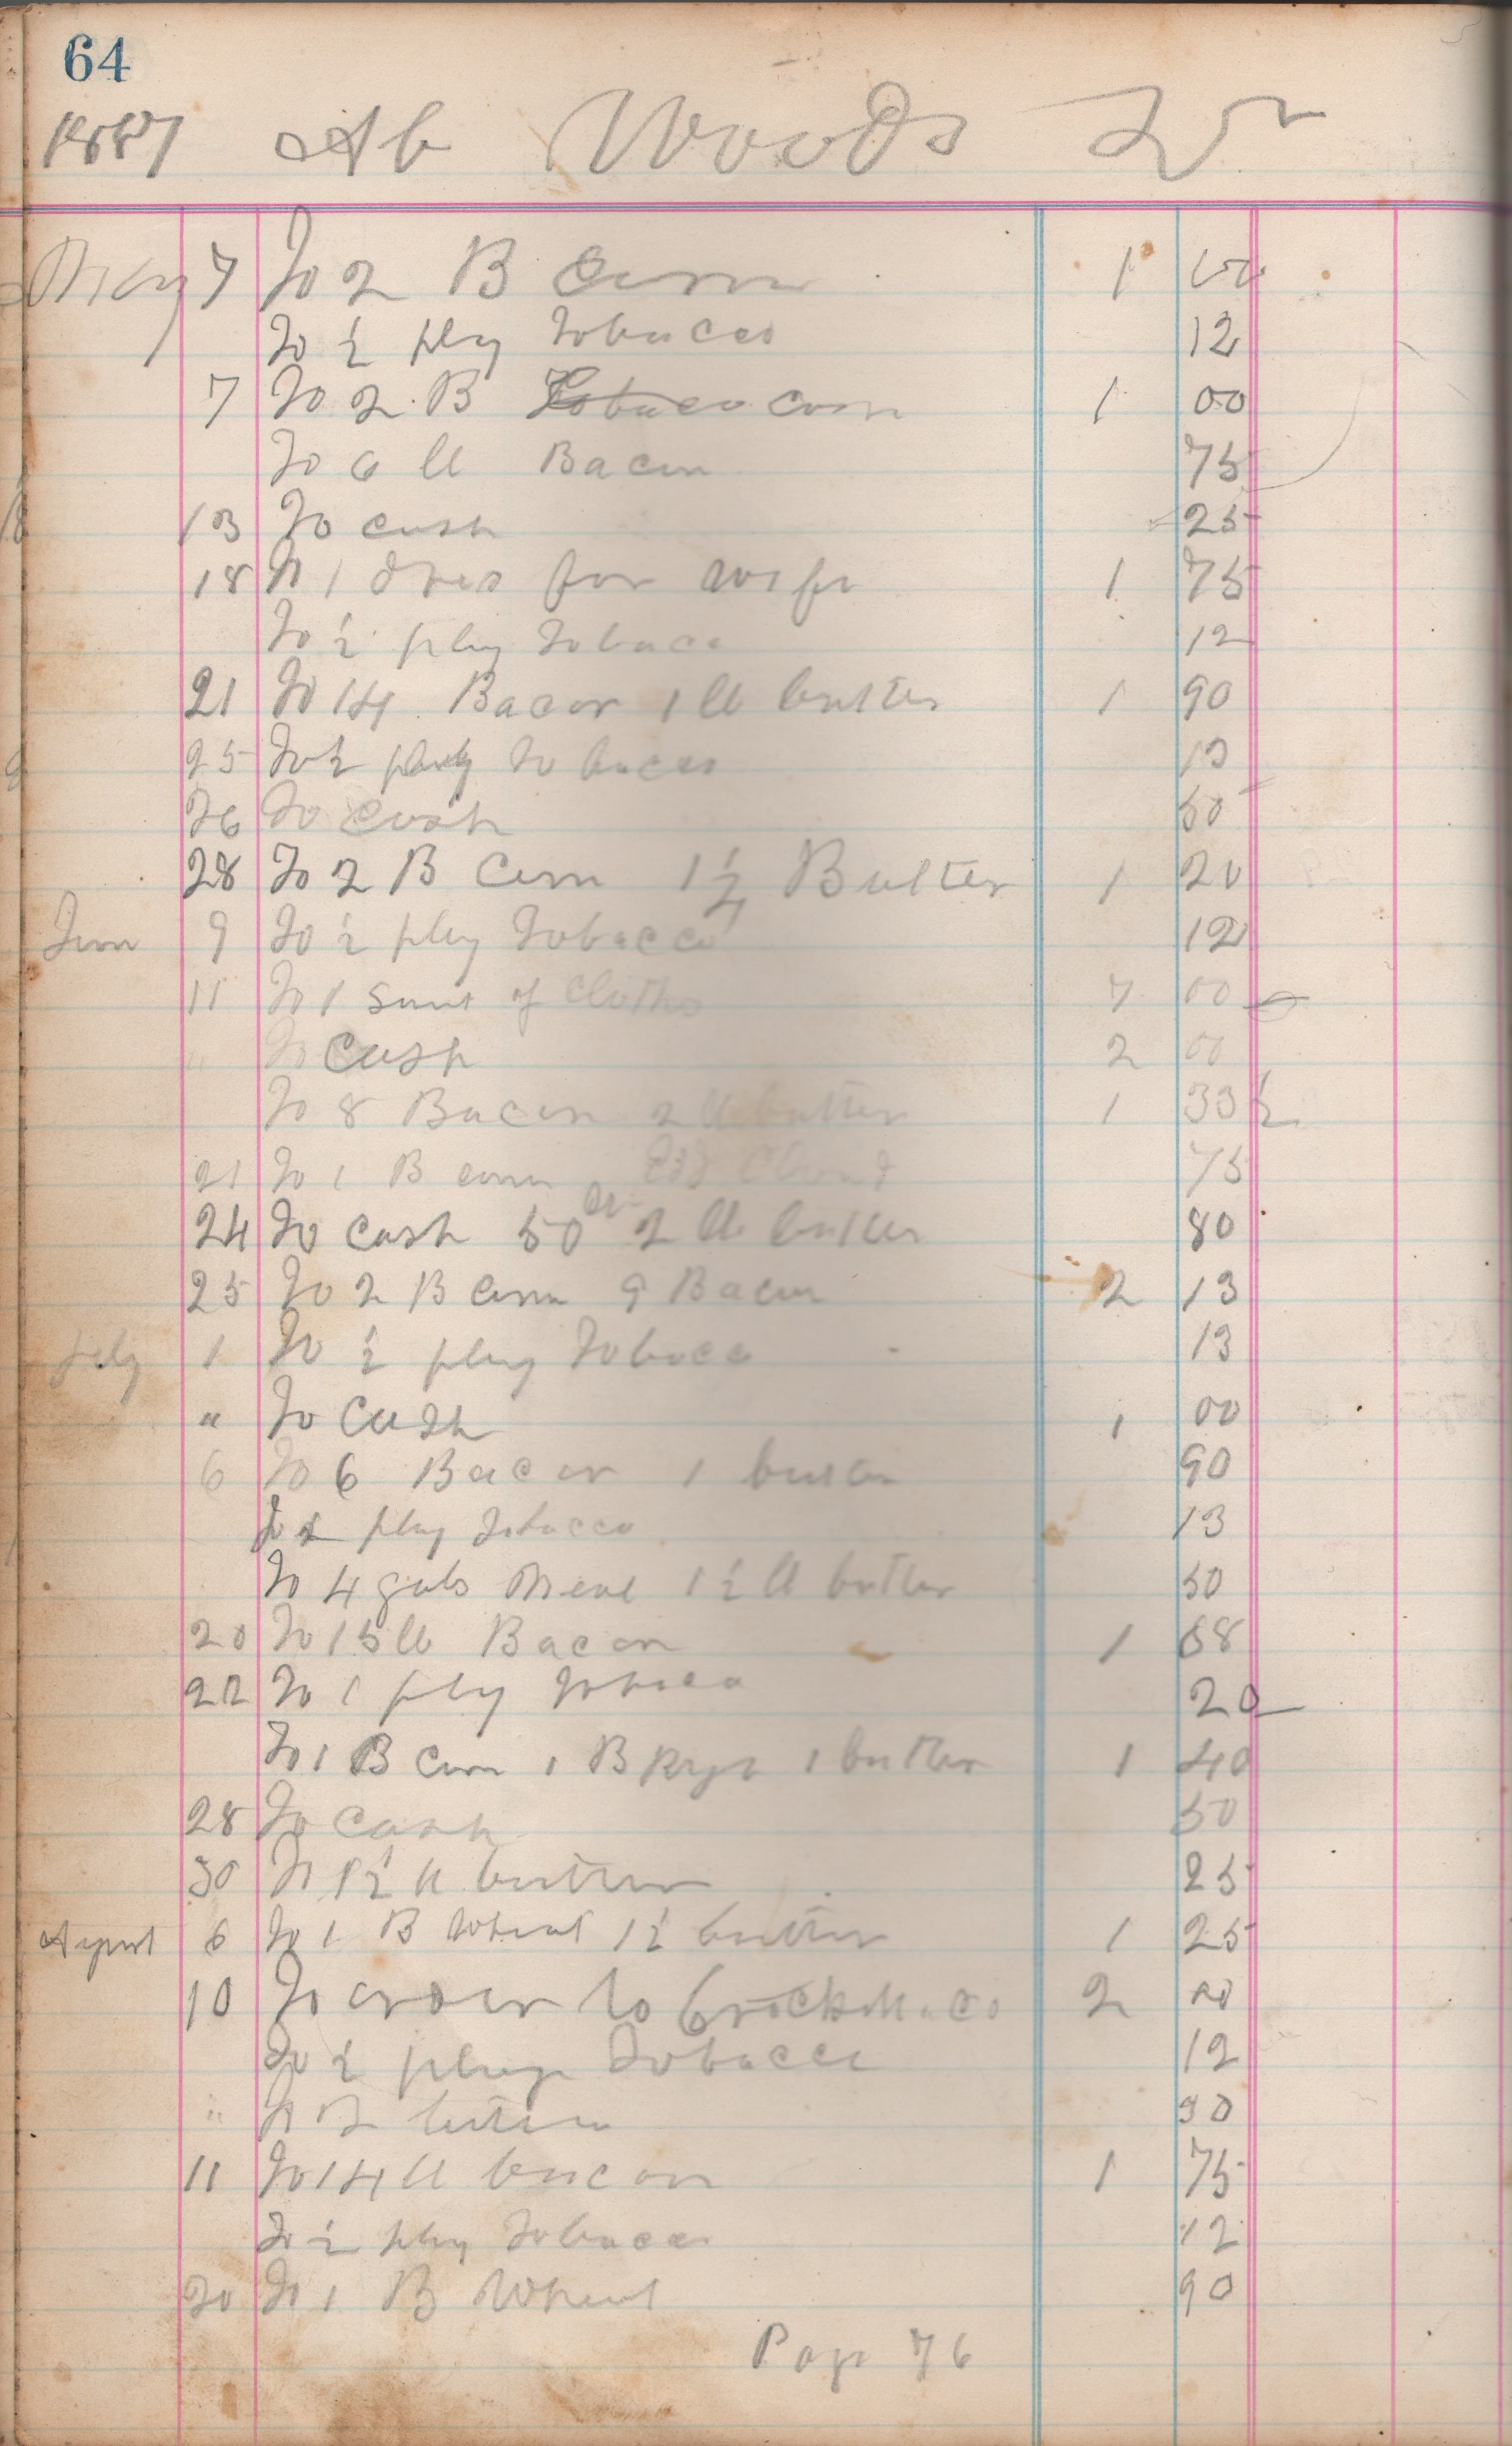 64
1887 Ab Woods Dr
May 7 To 2 B Corn 1 00
To ½ plug Tobacco 12
7 To 2 B Tobaco corn 1 00
To 6 lb Bacon 75
13 To cash 25
18 To 1 dres for wife 1 75
To ½ plug Tobaco 12
21 To 14 Bacon 1 lb butter 1 90
25 To ½ plug Tobacco 13
26 To Cash 50
28 To 2 B Corn 1½ Butter 1 20
June 9 To ½ plug Tobacco 12
11 To 1 Suut of Cloths 7 00
" To Cash 2 00
To 8 Bacon 2 lb butter 1 33½
21 To 1 B corn 75
24 To cash 50 cts 2 lb butter 80
25 To 2 B Corn 9 Bacon 2 13
July 1 To ½ plug Tobaco 13
" To Cash 1 00
6 To 6 Bacon 1 butter 90
To ½ plug Tobacco 13
To 4 gals Meal 1½ lb butter 50
20 To 15 lb Bacon 1 68
22 To 1 plug Tobaco 20
To 1 B Corn 1 B Rye 1 butter 1 40
28 To Cash 50
30 To 1½ lb butter 25
August 6 To 1 B Wheat 1½ butter 1 25
10 To order to 2 00
To ½ plug Tobacco 12
" To 2 butter 30
11 To 14 lb bacon 1 75
To ½ plug Tobacco 12
20 To 1 B Wheat 90
Page 76